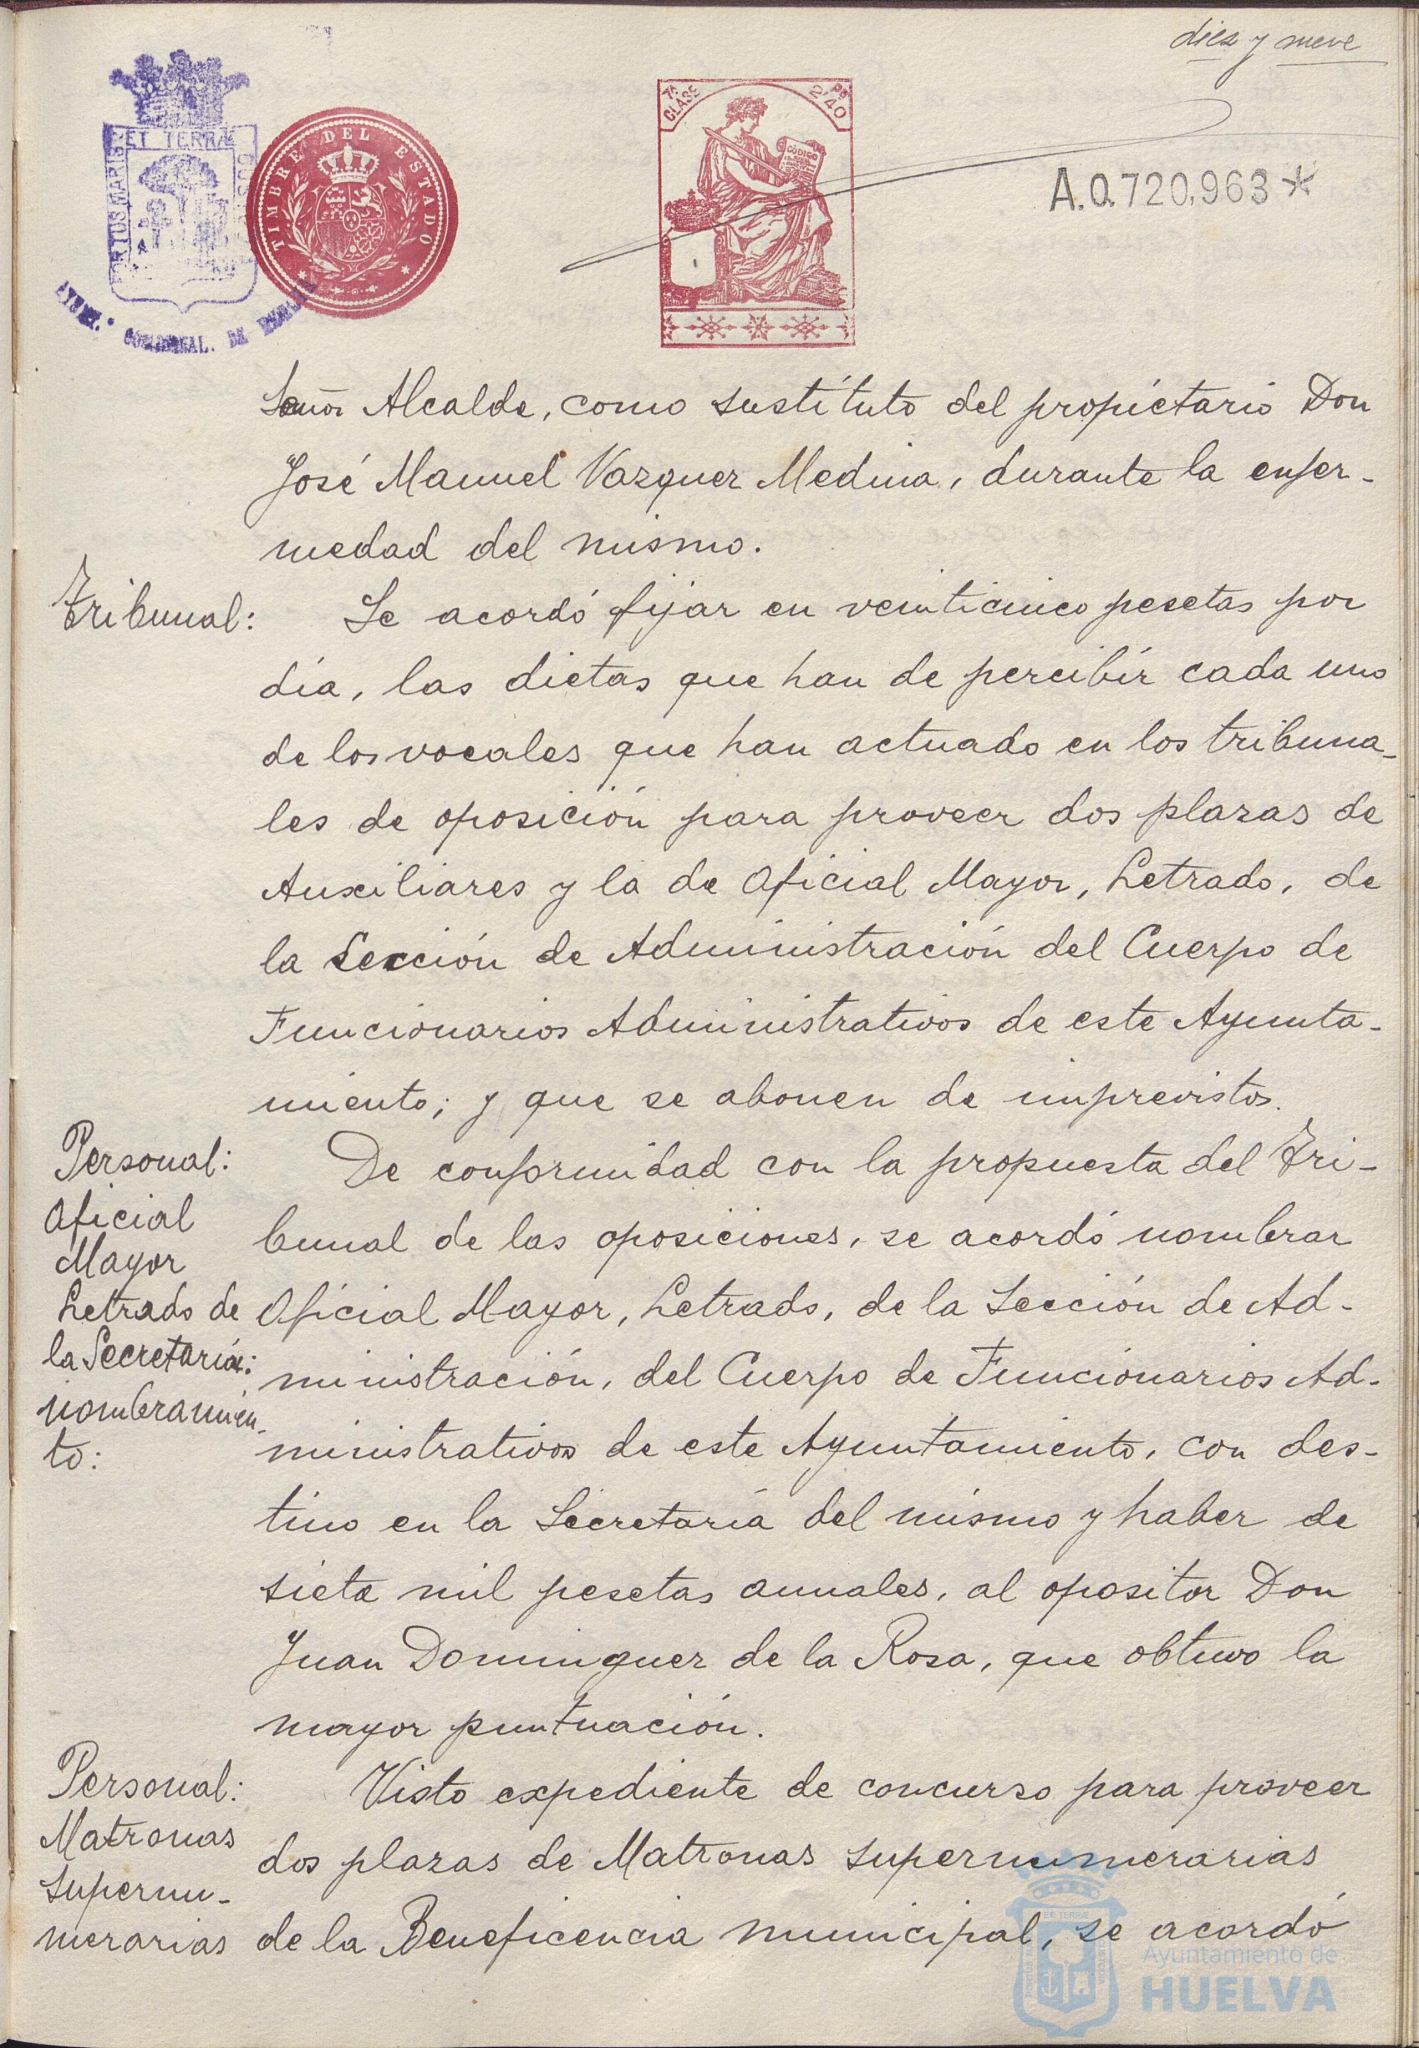 diez y nueve
ET TERRÆ
PORTUS MARIS
CUSTOD
AYUNT. CONSTITUCIONAL. DE HUELVA
TIMBRE DEL ESTADO
7ª CLASE
Ps 2'40
CÓDIGO
A.0.720,963*
Señor Alcalde, como sustituto del propietario Don
José Manuel Vazquez Medina, durante la enfer-
medad del mismo.
Tribunal:
Se acordó fijar en veinticinco pesetas por
día, las dietas que han de percibir cada uno
de los vocales que han actuado en los tribuna-
les de oposición para proveer dos plazas de
Auxiliares y la de Oficial Mayor, Letrado, de
la Sección de Administración del Cuerpo de
Funcionarios Administrativos de este Ayunta-
miento; y que se abonen de imprevistos.
Personal:
Oficial
Mayor
Letrado de
la Secretaría:
nombramien-
to:
De conformidad con la propuesta del Tri-
bunal de las oposiciones, se acordó nombrar
Oficial Mayor, Letrado, de la Sección de Ad-
ministración, del Cuerpo de Funcionarios Ad-
ministrativos de este Ayuntamiento, con des-
tino en la Secretaría del mismo y haber de
siete mil pesetas anuales, al opositor Don
Juan Dominguez de la Rosa, que obtuvo la
mayor puntuación.
Personal:
Matronas
supernu-
merarias
Visto expediente de concurso para proveer
dos plazas de Matronas supernumerarias
de la Beneficencia municipal, se acordó
Ayuntamiento de
HUELVA